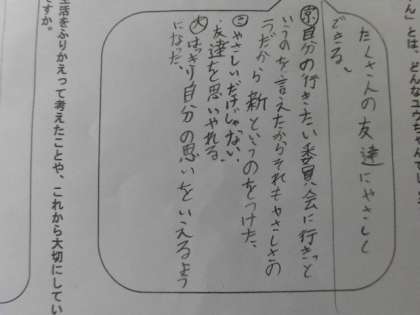 ん」とは、どんな
たくさんの友達にやさしく
できる。
自分の行きたい委員会に行きっと
いうのを言えたからそれもやさしさの
うだから新というのをつけた。
やさしいだけじゃない、
友達を思いやれる、
はっきり自分の思いをいえるよう
になった。
生活をふりかえって考えたことや、これから大切にしてい
ですか。